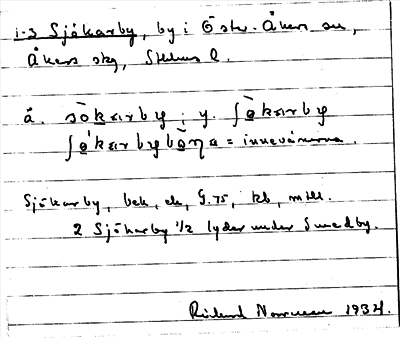 1-2 Sjökarby, by i Öster-Åkers sn,
Åkers skg, Sthlms l.
ä. sò̤karby; y. ʃò̤karby
ʃò̤karbybò̤ŋa = innevånarna.
Sjökarby, bek, ek, G.75, kb, mtl.
2 Sjökarby 1/2 lyder under Smedby.
Rickard 1934.